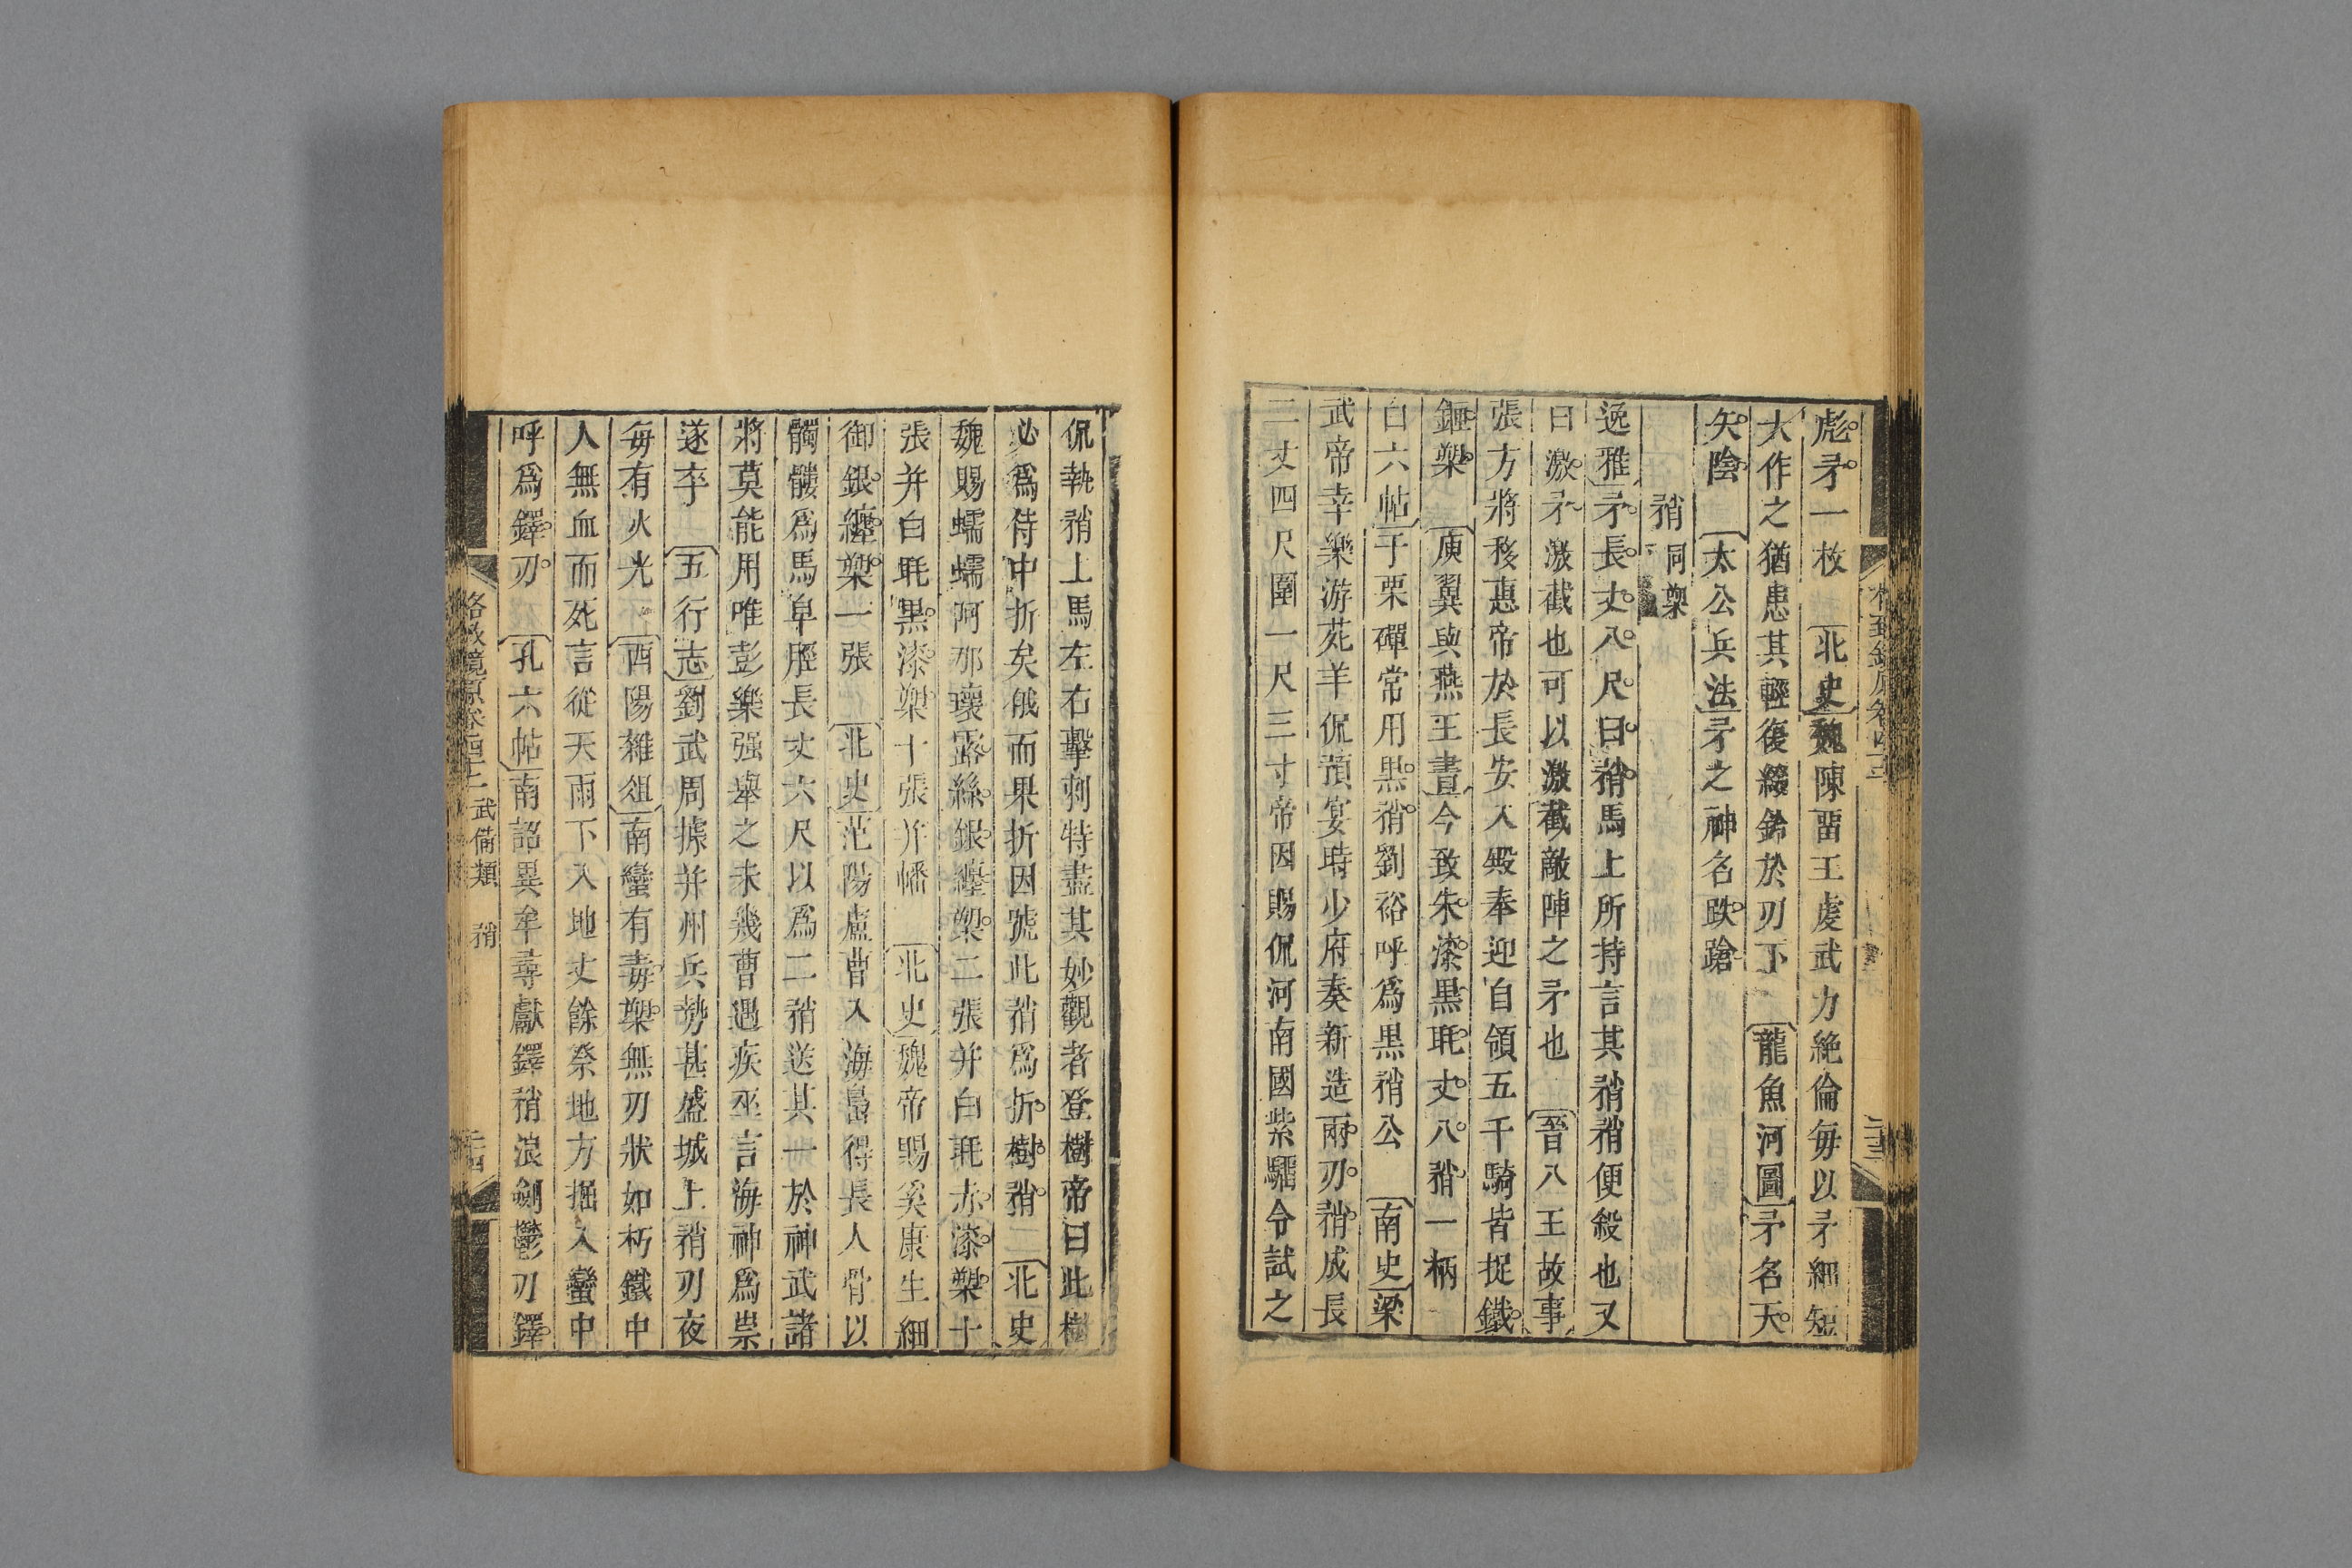 彪矛一枚 北史魏陳畱王虔武力絶倫每以矛細短
大作之猶患其輕復綴鈴於刃下 龍魚河圖矛名天
矢陰 太公兵法矛之神名跌蹌
矟 同槊
逸雅矛長丈八尺曰矟馬上所持言其矟矟便殺也又
曰激矛激截也可以激截敵陣之矛也 晉八王故事
張方將移惠帝於長安入殿奉迎自領五千騎皆捉鐵
鏂槊 庾翼與燕王書今致朱漆黑毦丈八矟一柄
白六帖于栗磾常用黑矟劉裕呼爲黑矟公 南史梁
武帝幸樂游苑羊侃預宴時少府奏新造兩刃矟成長
二丈四尺圍一尺三寸帝因賜侃河南國紫騮令試之
侃執矟上馬左右擊刺特盡其妙觀者登樹帝曰此樹
必爲侍中折矣俄而果折因號此矟爲折樹矟 北史
魏賜蠕蠕阿那瓌露絲銀纏槊二張并白毦赤漆槊十
張并白毦黑漆槊十張并幡 北史魏帝賜奚康生細
御銀纏槊一張 北史范陽盧曹入海島得長人骨以
髑髏爲馬皁脛長丈六尺以爲二矟送其一於神武諸
將莫能用唯彭樂强舉之未幾曹遇疾巫言海神爲祟
遂卒 五行志劉武周據并州兵勢甚盛城上矟刃夜
每有火光 酉陽雜俎南蠻有毒槊無刃狀如朽鐵中
人無血而死言從天雨下入地丈餘祭地方掘入蠻中
呼爲鐸刃 孔六帖南詔異牟尋獻鐸矟浪劍鬱刃鐸
格致鏡原卷四十二 武備類 矟